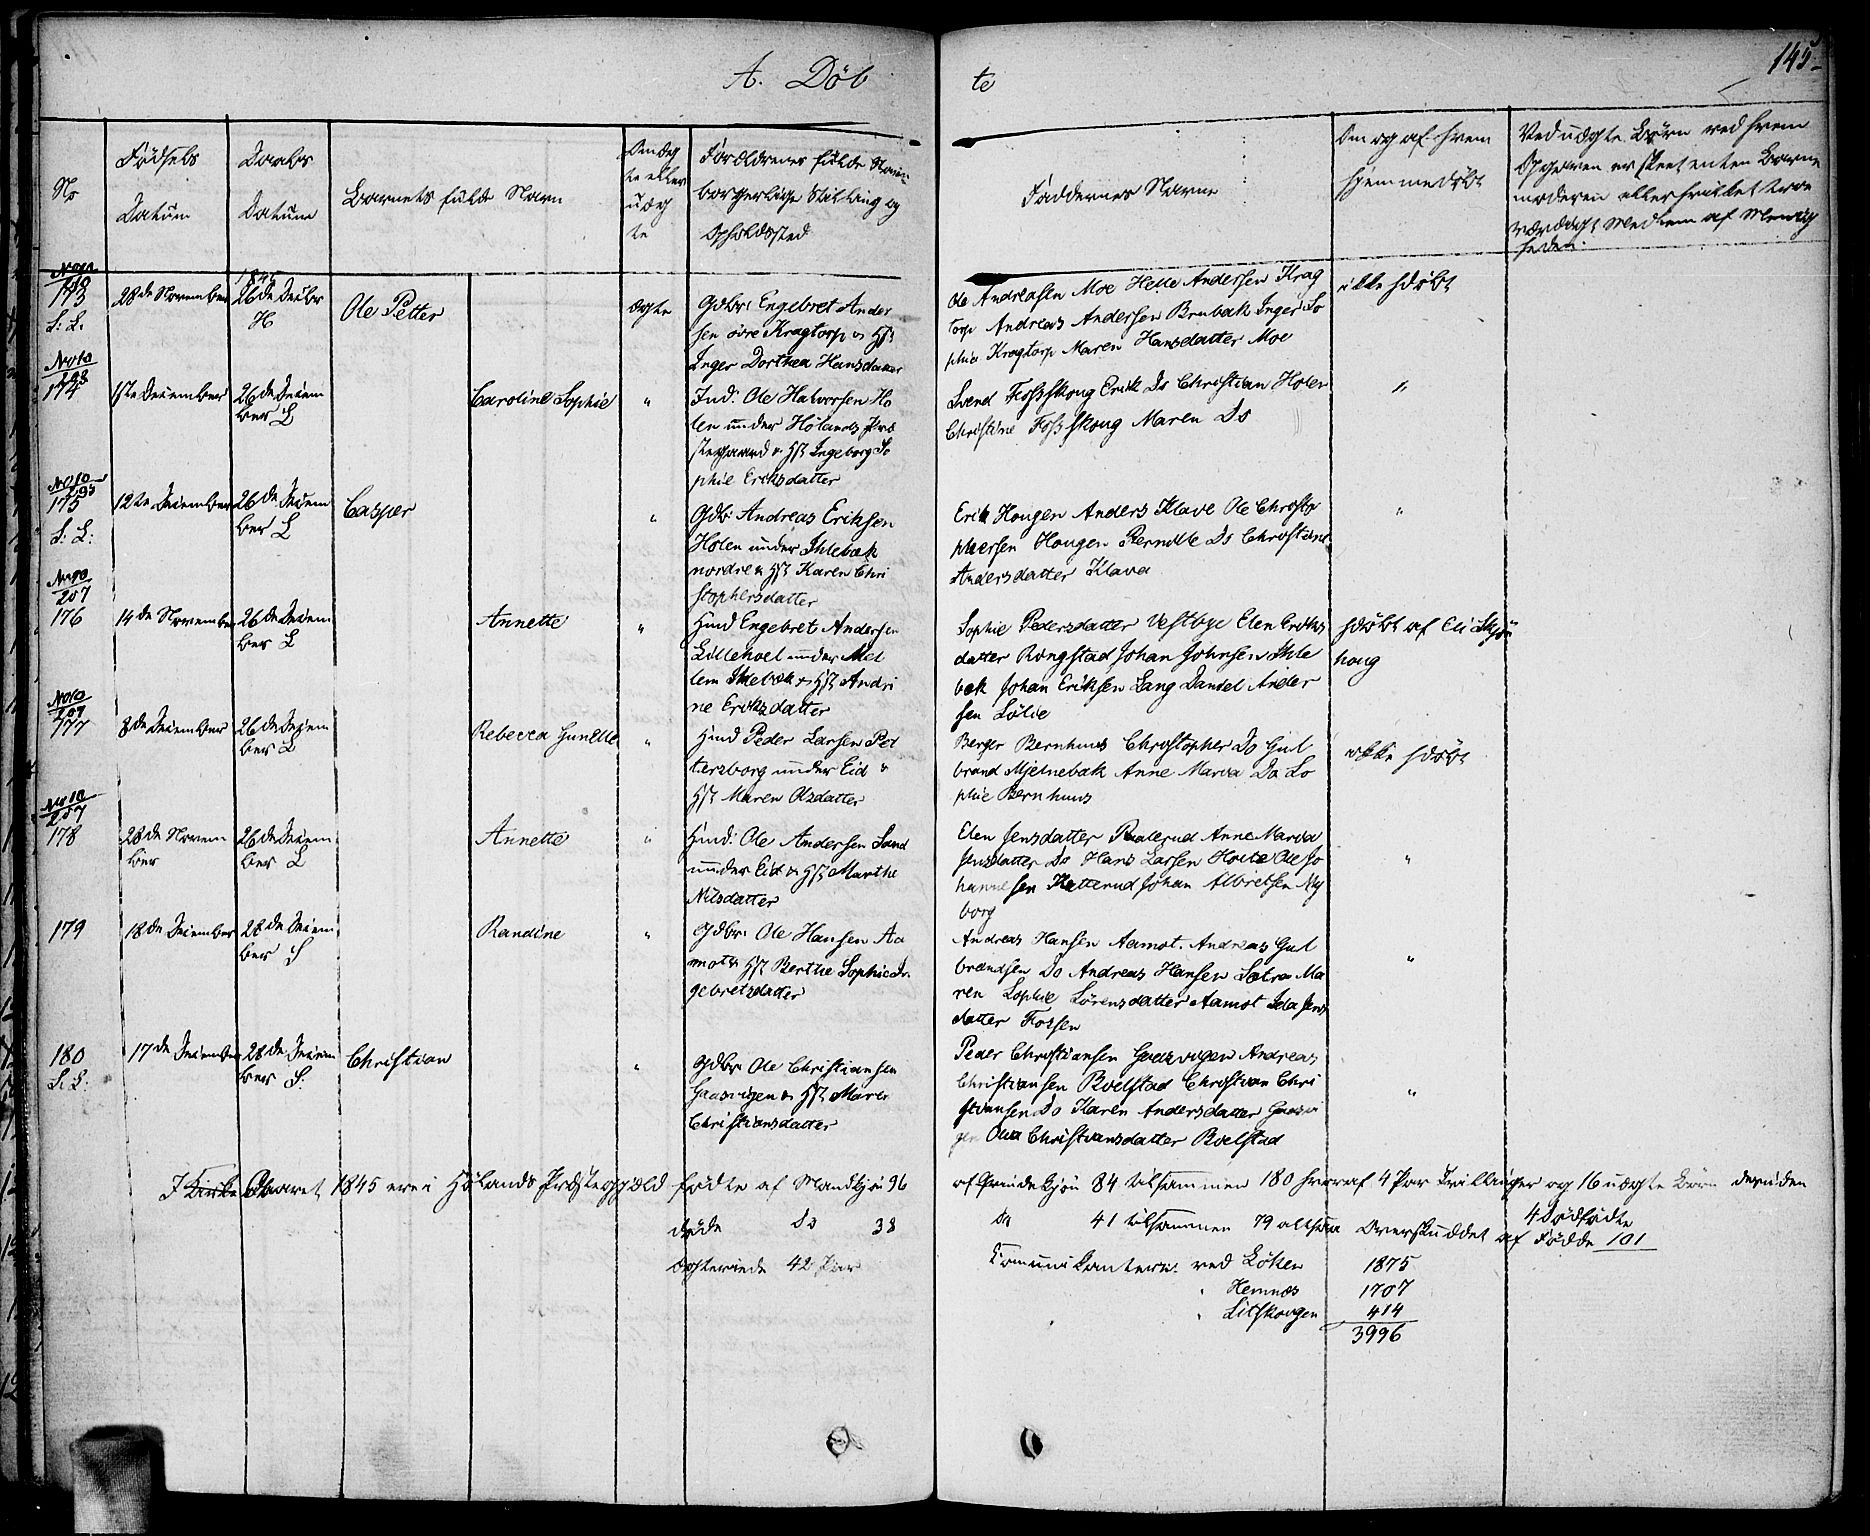 A. Döb te
145
No
Födsels
Datum
Daabs
Datum
Barnets fulde Navn
Om æg
te eller
uæg
te
Forældrenes fulde Navn
borgerlige Stilling og
Opholdssted
Faddernes Navne
Om og af hvem
hjemmedöbt
Ved uægte Börn ved hvem
Opgaven er skeet enten Barne
moderen eller hvilket troe
værdigt Medlem af Menig
heden.
173
S: L.
28de November
1845
26de Decbr
H
Ole Petter
ægte
Gdbr: Engebret Ander
sen övre Kragtorp & Hst
Inger Dorthea Hansdatter
Ole Andreasen Moe Helle Andersen Krag
torp Andreas Andersen Brubak Inger So
phie Kragtorp Maren Hansdatter Moe
ikke hdöbt
No 10
174
1ste December
26de Decem
ber L
Caroline Sophie
"
Ind: Ole Halvorsen Ho
len under Hölands Præ
stegaard & Hst Ingeborg So
phie Eriksdatter
Svend Fossskoug Erik Do Christian Holen
Christine Fossskoug Maren Do
"
No 10
175
S: L:
12te December
26de Decem
ber L
Casper
"
Gdbr Andreas Eriksen
Holen under Ihlebæk
nordre & Hst Karen Chri
stophersdatter
Erik Hougen Anders Klave Ole Christo
phersen Hougen Pernille Do Christiane
Andersdatter Klava
"
No 10
207
176
14de November
26de Decem
ber L
Annette
"
Hmd Engebret Andersen
Lillehoel under Mel
lem Ihlebæk & Hst Andri
ne Eriksdatter
Sophie Pedersdatter Vestbye Elen Eriks
datter Ringstad Johan Johnsen Ihle
bæk Johan Eriksen Lang Daniel Ander
sen Lölie
hdöbt af Eli Skjön
houg
No 10
209
177
8de December
26de Decem
ber L
Rebecca Gunelle
"
Hmd Peder Larsen Pet
tersborg under Eid &
Hst Maren Olsdatter
Berger Bernhuus Christopher Do Gul
brand Mjelnebæk Anne Maria Do So
phie Bernhuus
ikke hdöbt
No 10
257
178
28de Novem
ber
26de Decem
ber L
Annette
"
Hmd: Ole Andersen Sand
under Eid & Hst Marthe
Nilsdatter
Elen Jensdatter Raalerud Anne Maria
Jensdatter Do Hans Larsen Holte Ole Jo
hannesen Ketterud Johan Albretsen Ny
borg
"
179
18de December
28de Decem
ber S
Randine
"
Gdbr: Ole Hansen Aa
mot & Hst Berthe Sophie In
gebretsdatter
Andreas Hansen Aamot. Andreas Gul
brandsen Do Andreas Hansen Sætra Ma
ren Sophie Sörensdatter Aamot Ida Jens
datter Fossen
"
180
S: L:
17de December
28de Decem
ber S.
Christian
"
Gdbr Ole Christiansen
Gaasvigen & Hst Maren
Christiansdatter
Peder Christiansen Gaasvigen Andreas
Christiansen Roelstad Christian Chri
stiansen Do Karen Andersdatter Gaasvi
gen Olea Christiansdatter Roelstad
"
I Kirke Aaret 1845 ere i Hölands Præstegjæld födte af Mandkjön 96 af Qvindekjön 84 tilsammen 180 hvoraf 4 Par Tvillinger og 16 uægte Börn desuden
4 Dödfödte
döde Do 38 Do 41 tilsammen 79 altsaa Overskuddet af Födde 101
ægteviede 42 Par
Communikanterne ved Löken 1875
" Hemnæs 1707
" Sitskougen 414
3996